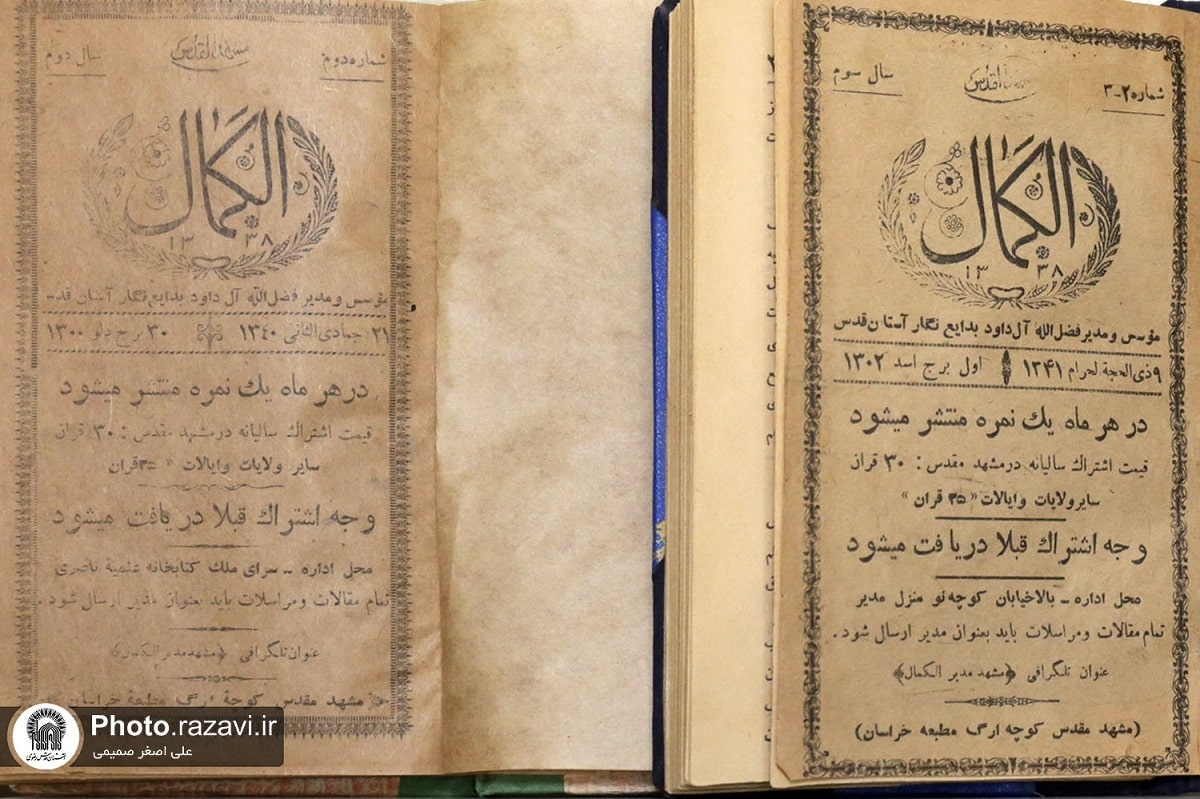 شماره ۲ـ۳
سال سوم
الکمال
۱۳ ۳۸
مؤسس ومدیر فضل‌الله آل داود بدایع نگار آستان قدس
۹ ذی‌الحجة لحرام ۱۳۴۱ اول برج اسد ۱۳۰۲
در هر ماه یك نمره منتشر میشود
قیمت اشتراك سالیانه درمشهد مقدس : ۳۰ قران
سایر ولایات وایالات «۳۵ قران»
وجه اشتراك قبلا دریافت میشود
محل اداره ـ بالاخیابان کوچه نو منزل مدیر
تمام مقالات ومراسلات باید بعنوان مدیر ارسال شود .
عنوان تلگرافی ﴿مشهد مدیر الکمال﴾
(مشهد مقدس کوچه ارگ مطبعه خراسان)
شماره دوم
سال دوم
الکمال
۱۳ ۳۸
مؤسس ومدیر فضل‌الله آل داود بدایع نگار آستان قدـ
۲۱ جمادی‌الثانی ۱۳۴۰ ۳۰ برج دلو ۱۳۰۰
در هر ماه یك نمره منتشر میشود
قیمت اشتراك سالیانه درمشهد مقدس : ۳۰ قران
سایر ولایات وایالات « ۳۵قران
وجه اشتراك قبلا دریافت میشود
محل اداره ـ سرای ملك کتابخانه علمیة ناصری
تمام مقالات ومراسلات باید بعنوان مدیر ارسال شود .
عنوان تلگرافی ﴿مشهد مدیر الکمال﴾
مشهد مقدس کوچهٔ ارگ مطبعهٔ خراسان
Photo.razavi.ir
علی اصغر صمیمی